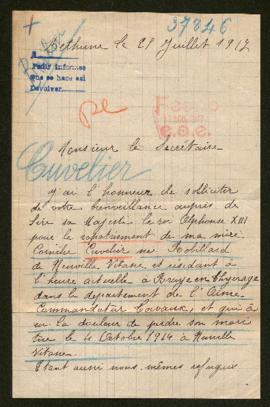 37846
Béthune le 21 Juillet 1917
A
Pedir informes
Que se hace así
Devolver.
pe
Monsieur le Secrétaire
Cuvelier
J'ai l'honneur de solliciter
de votre bienveillance auprès de
Sire sa Majesté le roi Alphonse XIII
pour le rapatriement de ma mère
Cuvelier née Robillard
de Neuville Vitasse et résidant à
l'heure actuelle à
dans le département de l'Aisne
Commandatur et qui a
eu la douleur de perdre son mari
tué le 4 Octobre 1914 à Neuville
Vitasse.
Etant aussi nous mêmes réfugiés